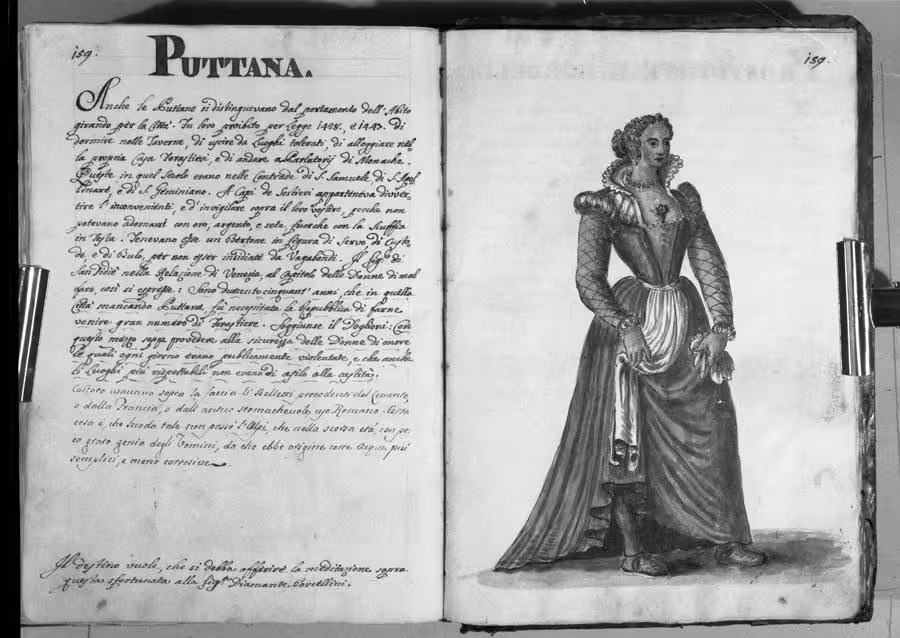 159.
PUTTANA.
Anche le Puttane si distinguevano dal portamento dell'Abito
girando per la Città. Fu loro proibito per Legge 1428., e 1443. di
dormire nelle Taverne, di uscire da Luoghi tolerati, di alloggiare nella
la propria Casa Forestieri, e di andare a Parlatorij di Monache.
Queste in quel Secolo erano nelle Contrade di S. Samuele, di S. Apol
linare, e di S. Geminiano. A Capi de Sestieri apparteneva diver
tire l'inconvenienti, e d'invigilare sopra il loro vestire, perche non
potevano adornarsi con oro, argento, e seta, fuorche con la Scuffia
in Testa. Tenevano esse un Bertone in figura di Servo, di Custo
de, e di Bulo, per non esser insidiate da Vagabondi. Il Sigr. di
San Didiè nella Relazione di Venezia al Capitolo delle Donne di mal
fare, così si espresse: Sono duecento cinquant'anni, che in quella
Città mancando Puttane fu necessitata la Repubblica di farne
venire gran numero di Forestiere. Soggiunse il Doglioni: Con
questo mezzo seppe provedere alla sicurezza delle Donne di onore
le quali ogni giorno erano publicamente violentate, e che anche
li Luoghi più rispettabili non erano di asilo alla castità.
Costoro usavano sopra la faccia li Belletti provenienti dal Levante,
o dalla Francia, o dall'antico stomachevole uso Romano. Certa
cosa è, che Moda tale non passò l'Alpi, che nella scorsa età, con po
co grato genio degli Uomini, da che ebbe origine certe Acque più
semplici, e meno corrosive
Il destino vuole, che si debba offerire la meditazione sopra
questa sfortunata alla Sigra Diamante Torcellini.
159.